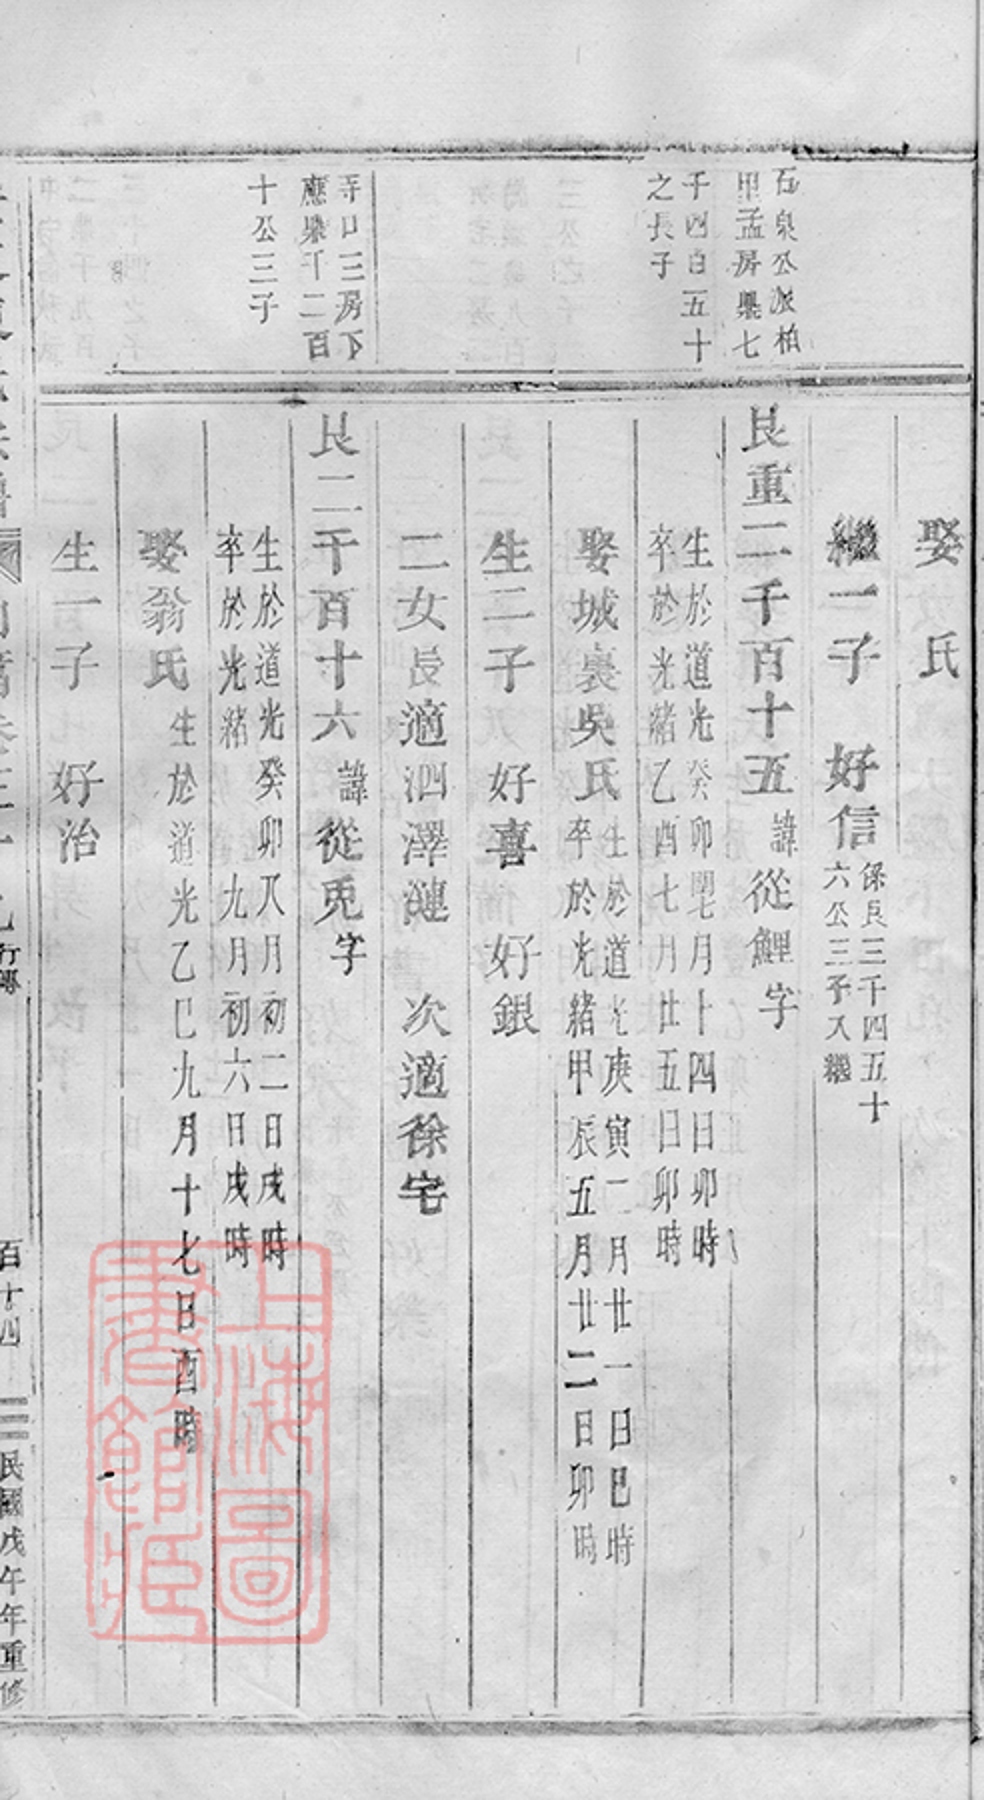 石泉公派柏
甲孟房㮣七
千四百五十
之長子
寺口三房下
應㮣千二百
十公三子
娶　氏
繼一子　好信
係良三千四五十
六公三子入繼
良重二千百十五諱從鯉字
生於道光癸卯閏七月十四日卯時
卒於光緒乙酉七月廿五日卯時
娶城裏吳氏
生於道光庚寅二月廿一日巳時
卒於光緒甲辰五月廿二日卯時
生二子　好喜　好銀
二女長適泗澤漣　次適徐宅
良二千百十六諱從兎字
生於道光癸卯八月初二日戌時
卒於光緒　九月初六日戌時
娶翁氏生於道光乙巳九月十七日酉時
生一子　好治
行傳
百十四
民國戊午年重修
上海圖
書館藏